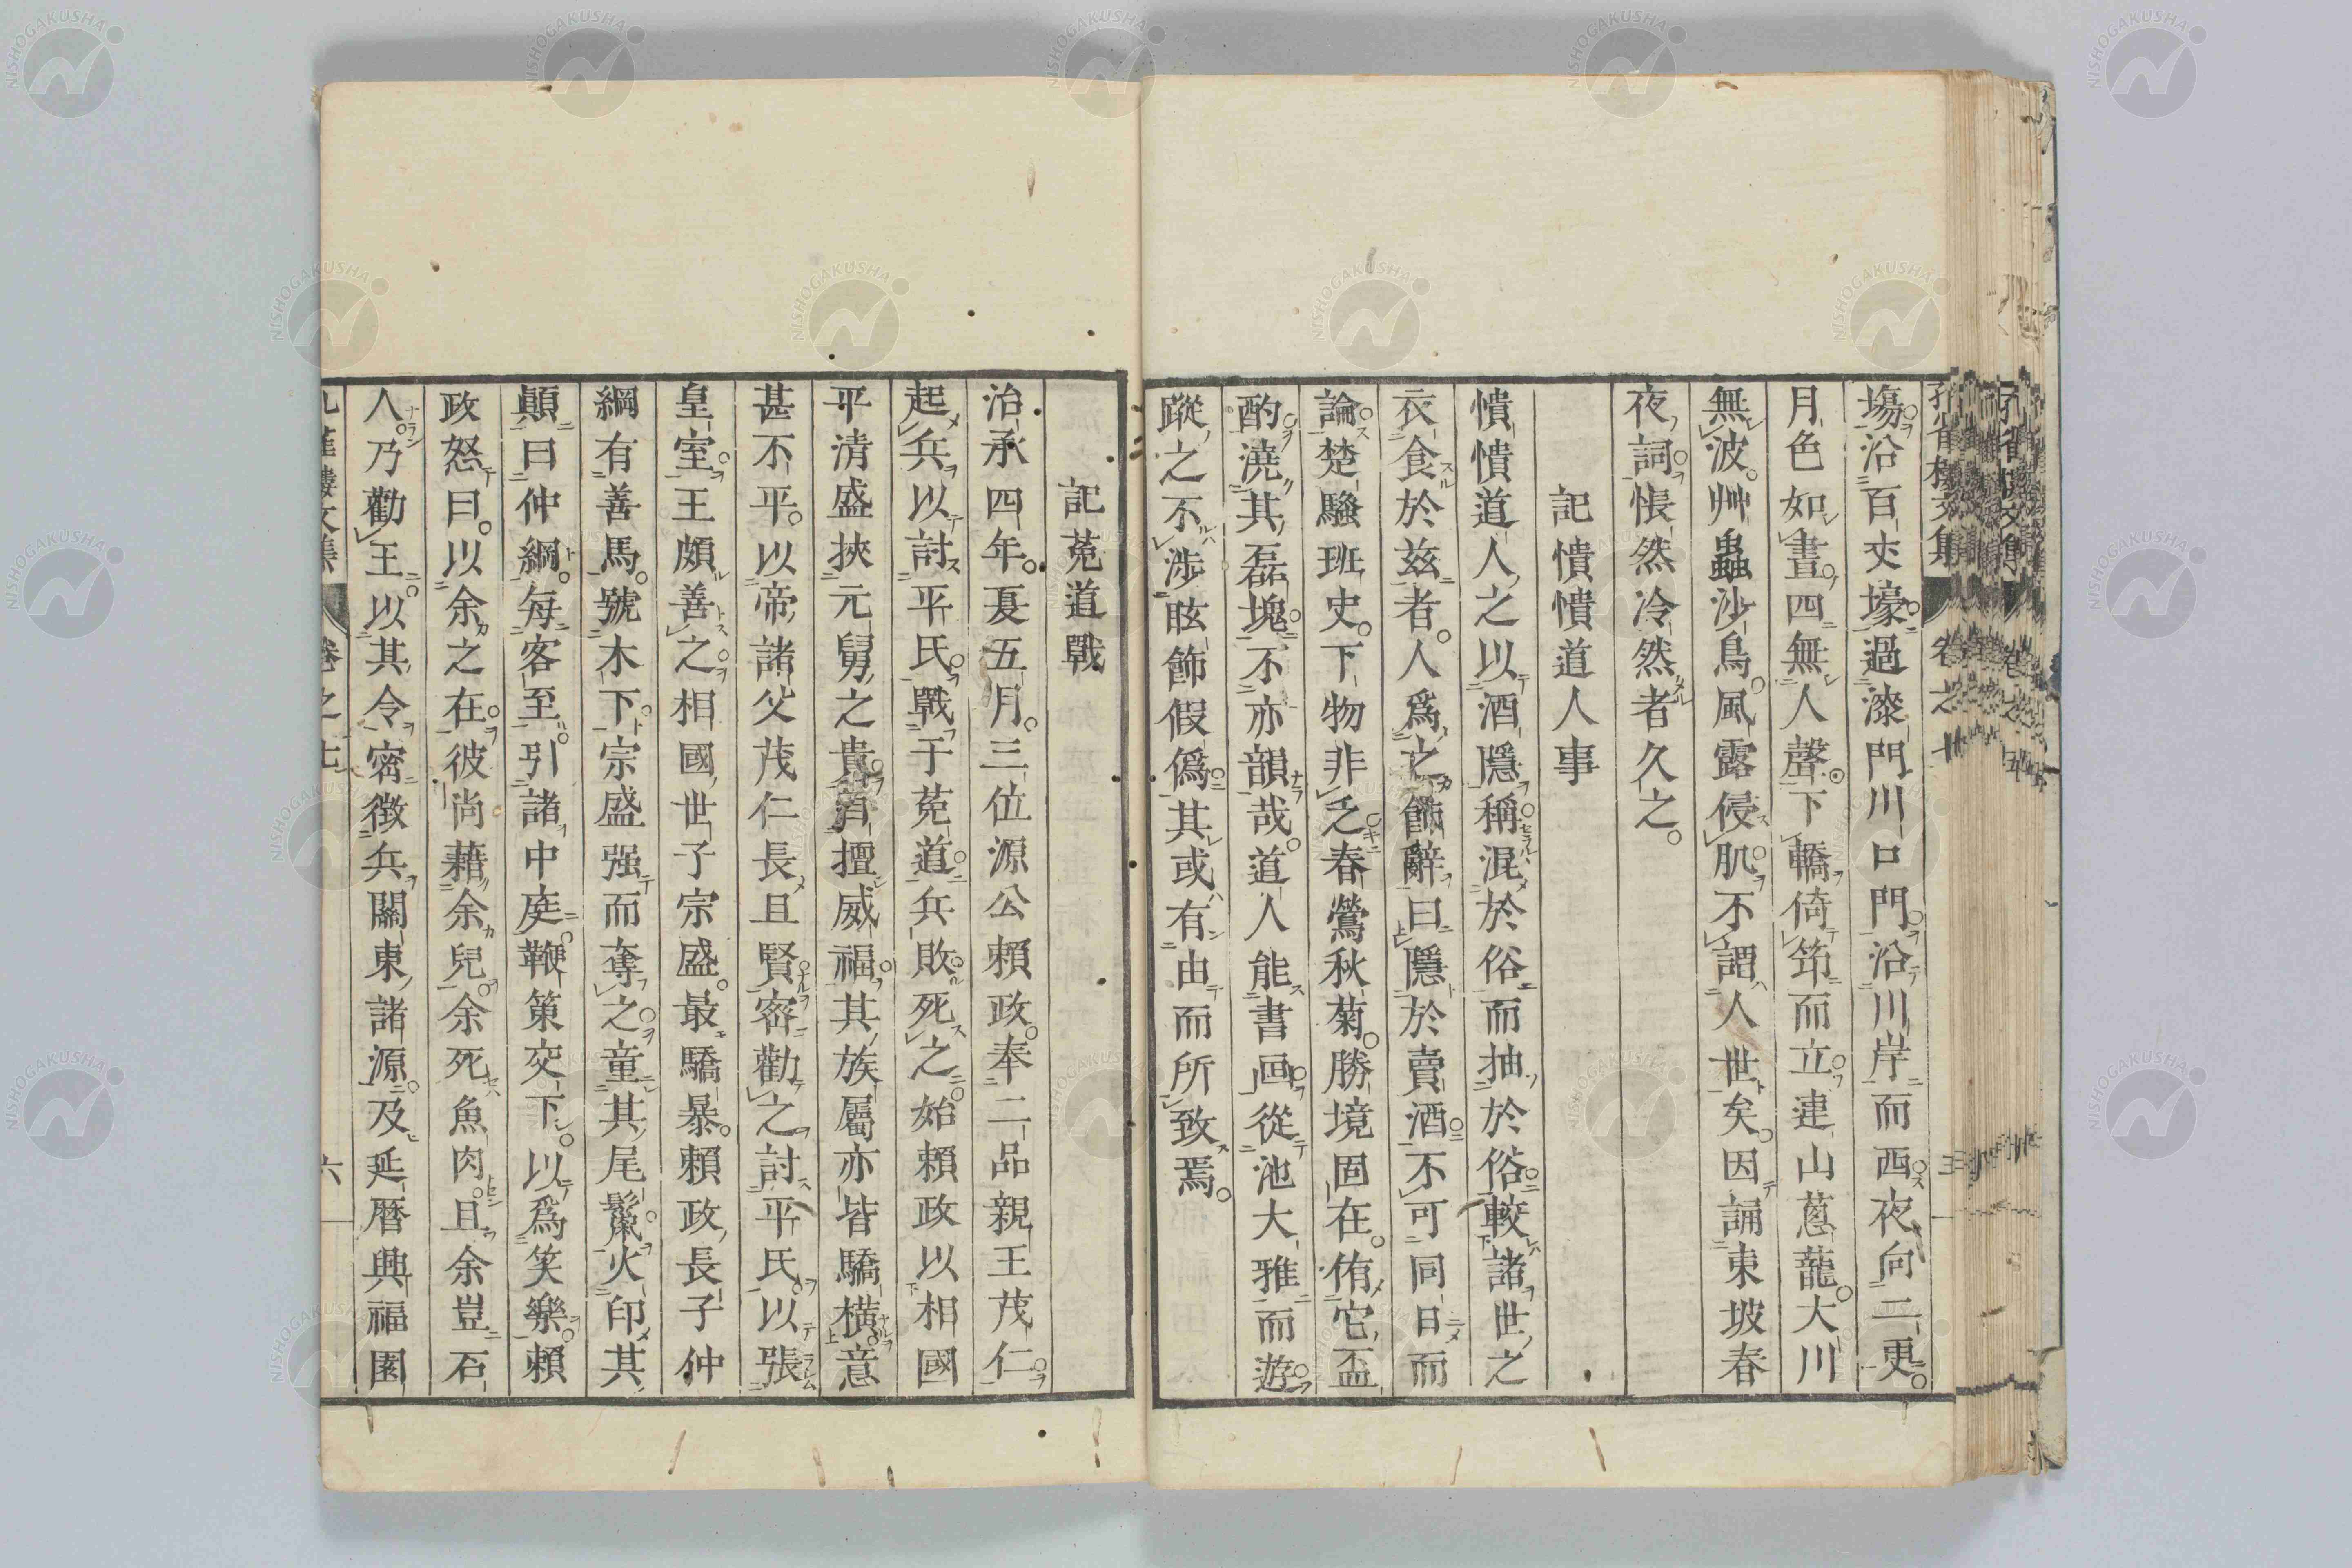 塲沿百丈壕過漆門川口門沿川岸而西夜向二更
月色如晝四無人聲下轎倚筇而立連山蔥蘢大川
無波艸蟲沙鳥風露侵肌不謂人世矣因誦東坡春
夜詞悵然冷然者久之
記憒憒道人事
憒憒道人之以酒隱稱混於俗而抽於俗較諸世之
衣食於玆者人爲之飾辭曰隱於賣酒不可同日而
論楚騷班史下物非乏春鶯秋菊勝境固在侑它盃
酌澆其磊塊不亦韻哉道人能書画從池大雅而遊
蹤之不涉眩飾假僞其或有由而所致焉
記菟道戰
治承四年夏五月三位源公賴政奉二品親王茂仁
起兵以討平氏戰于菟道兵敗死之始賴政以相國
平淸盛挾元舅之貴擅威福其族屬亦皆驕橫意
甚不平以帝諸父茂仁長且賢密勸之討平氏以張
皇室王頗善之相國世子宗盛最驕暴賴政長子仲
綱有善馬號木下宗盛强而奪之童其尾鬣火印其
顚曰仲綱每客至引諸中庭鞭策交下以爲笑樂賴
政怒曰以余之在彼尚藉余兒余死魚肉且余豈石
人乃勸王以其令密徴兵關東諸源及延曆興福園
卷之七
六